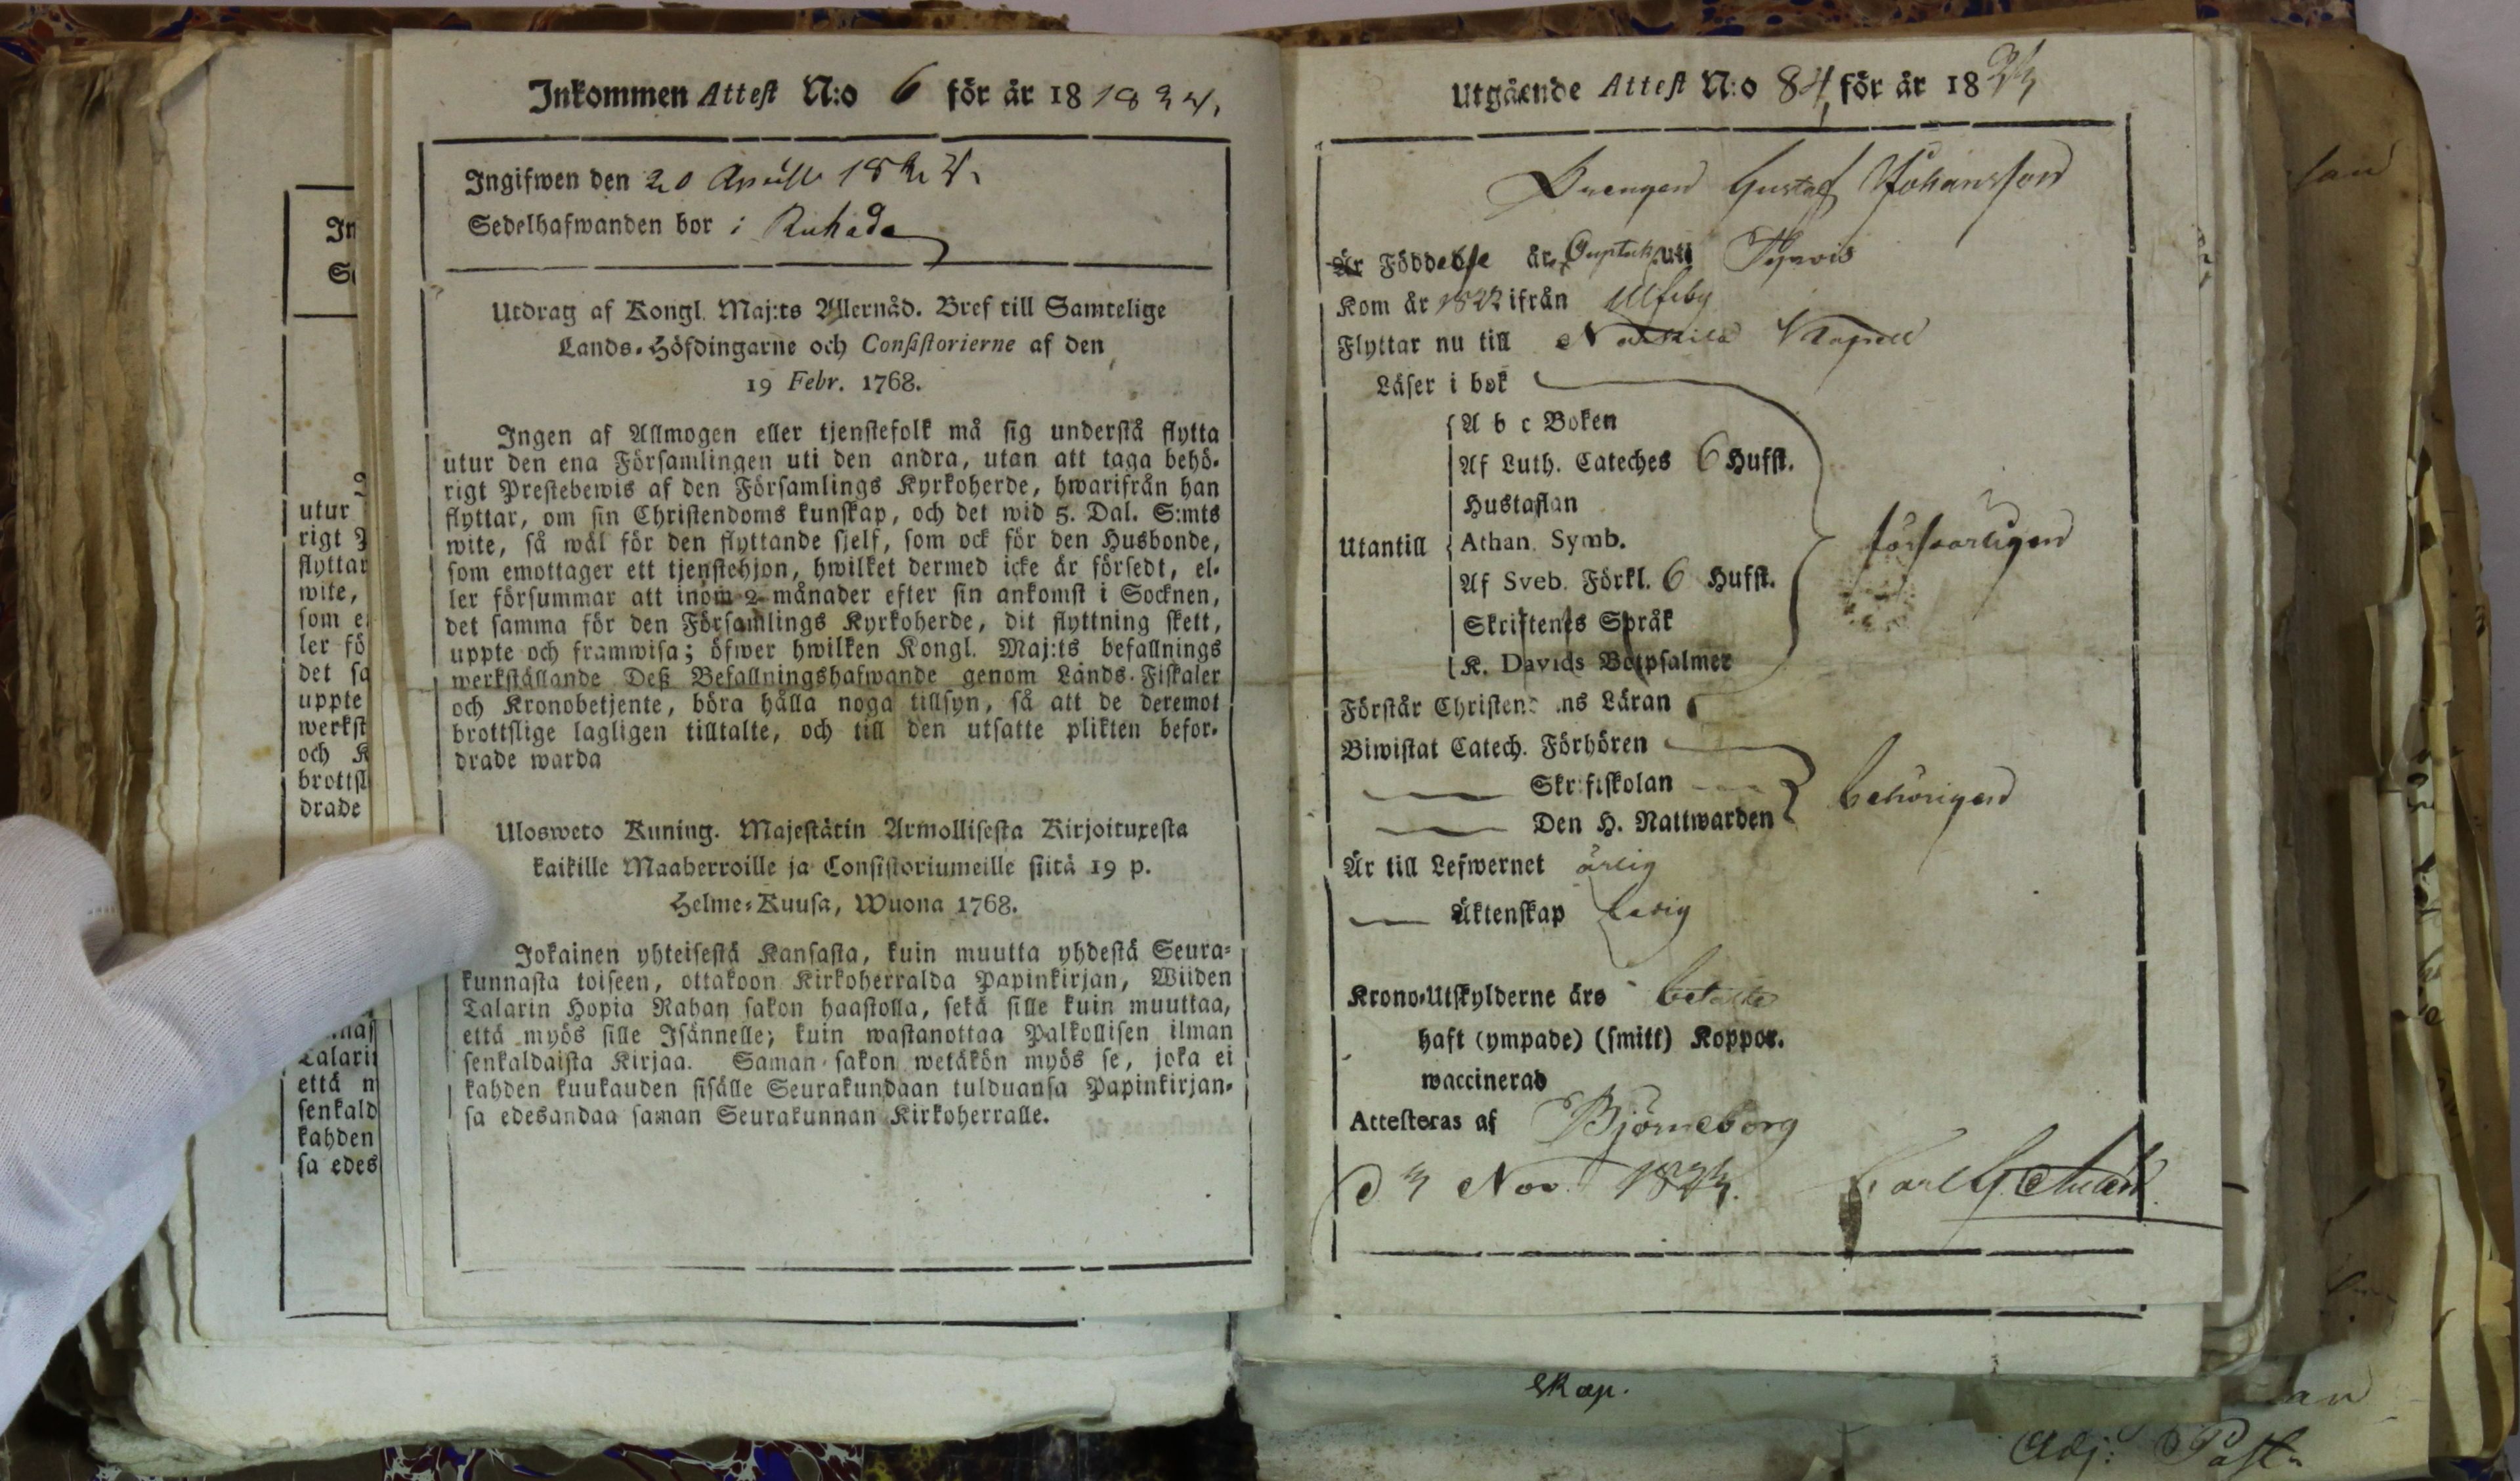 Inkommen Attest N:o 6 för år 18 1824.
Ingifwen den 20 Aprill 1824.
Sedelhafwanden bor i
Utdrag af Kongl. Maj:ts Allernåd. Bref till Samtelige
Lands-Höfdingarne och Consistorierne af den
19 Febr. 1768.
Ingen af Allmogen eller tjenstefolk må sig understå flytta
utur den ena Församlingen uti den andra, utan att taga behö-
rigt Prestebewis af den Församlings Kyrkoherde, hwarifrån han
flyttar, om sin Christendoms kunskap, och det wid 5. Dal. S:mts
wite, så wäl för den flyttande sjelf, som ock för den Husbonde,
som emottager ett tjenstehjon, hwilket dermed icke är försedt, el-
ler försummar att inom 2 månader efter sin ankomst i Socknen,
det samma för den Församlings Kyrkoherde, dit flyttning skett,
uppte och framwisa; öfwer hwilken Kongl. Maj:ts befallnings
werkställande Deß Befallningshafwande genom Lands-Fiskaler
och Kronobetjente, böra hålla noga tillsyn, så att de deremot
brottslige lagligen tilltalte, och till den utsatte plikten befor-
drade warda
Ulosweto Kuning. Majestätin Armollisesta Kirjoituxesta
kaikille Maaherroille ja Consistoriumeille siitä 19 p.
Helme-Kuusa, Wuona 1768.
Jokainen yhteisestä Kansasta, kuin muutta yhdestä Seura-
kunnasta toiseen, ottakoon Kirkoherralda Papinkirjan, Wiiden
Talarin Hopia Rahan sakon haastolla, sekä sille kuin muuttaa,
että myös sille Isännelle; kuin wastanottaa Palkollisen ilman
senkaldaista Kirjaa. Saman sakon wetäkön myös se, joka ei
kahden kuukauden sisälle Seurakundaan tulduansa Papinkirjan-
sa edesandaa saman Seurakunnan Kirkoherralle.
Utgående Attest N:o 84 för år 1823
Drengen Gustaf Johansson
Är Föddelse år uti
Kom år 1822 ifrån Ulfsby
Flyttar nu till Kapell
Läser i bok
A b c Boken
Af Luth. Cateches 6 Hufst.
Hustaflan
Utantill Athan. Symb. försvarligen
Af Sveb. Förkl. 6 Hufst.
Skriftenes Språk
K. Davids Botpsalmer
Förstår Christendomens Läran
Biwistat Catech. Förhören
Skriftskolan
Den H. Nattwarden behörigen
Är till Lefwernet ärlig
Äktenskap ledig
Krono-Utskylderne äro betalte
haft (ympade) (smitt) Koppor.
waccinerad
Attesteras af Björneborg
d 3 Nov. 1823. Carl
utur
rigt
flyttar
wite,
som e
ler fö
det sa
uppte
werkst
och K
brottsl
drade
Talari
että n
senkald
kahden
sa edes
skap.
Adj: Past.